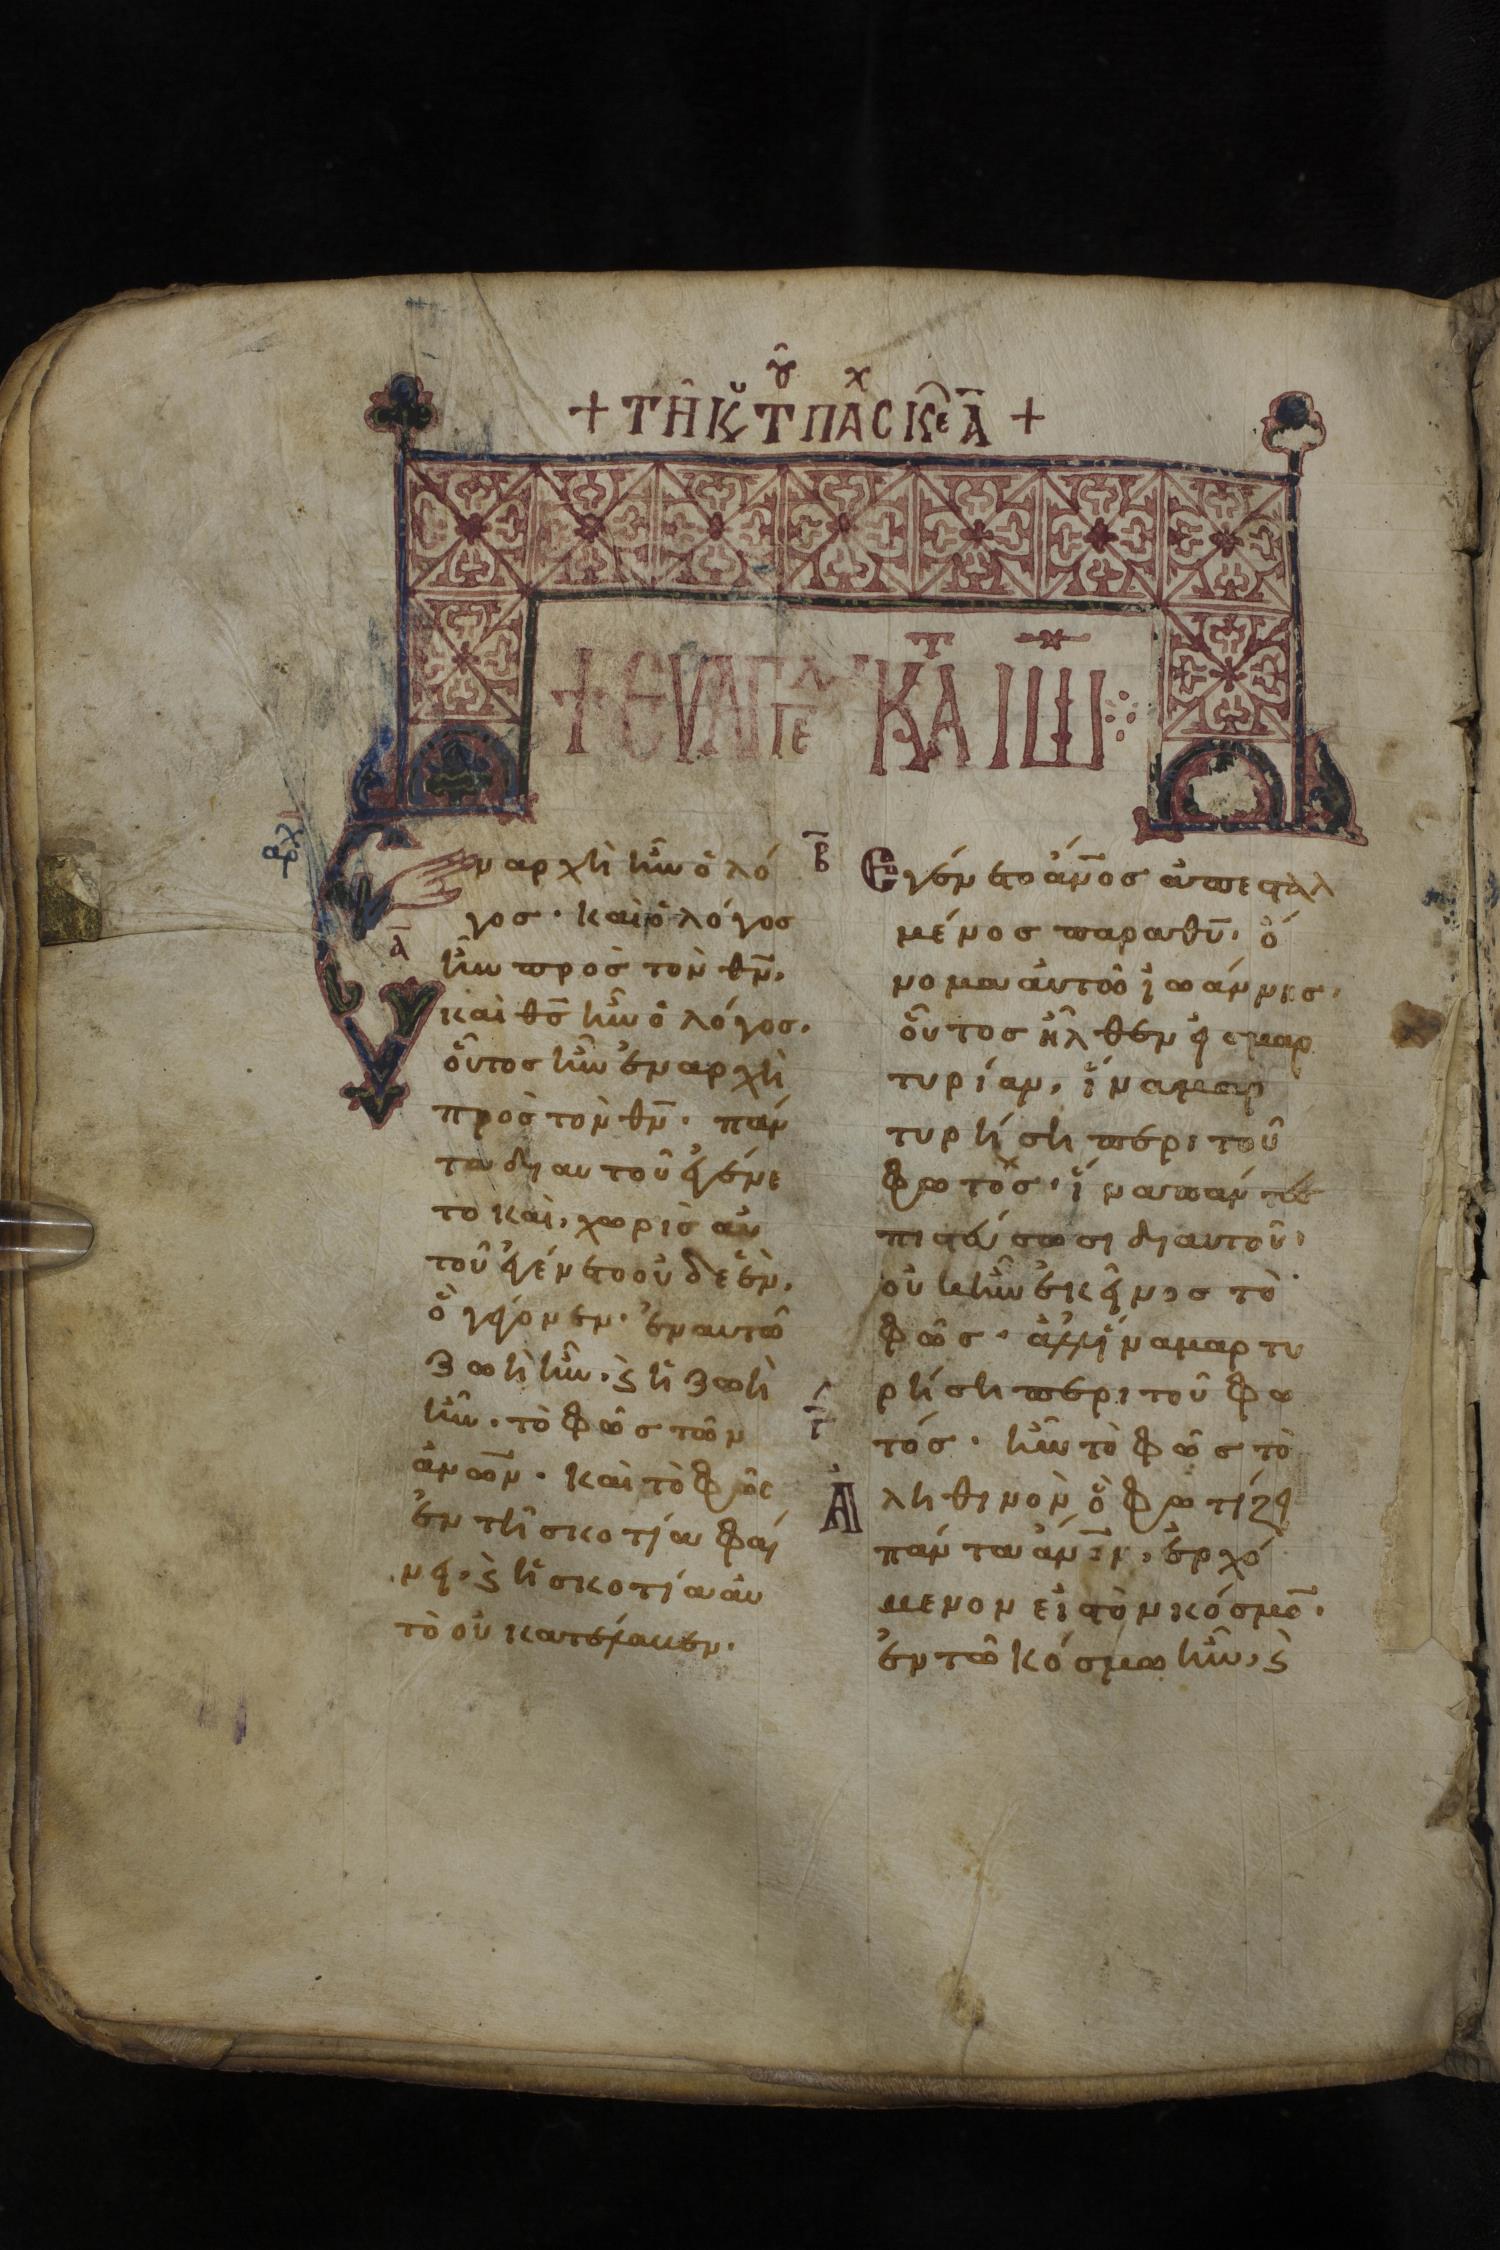 + ΤῊ ΚΥ Τ͂ΟΥ ΠΑΣΧ ΚΕ Α +
+ ΕΥΑΓΓΕΛ ΚΑΤ ΙΩ
αρχ
Εν αρχὴ ἦν ὁ λό
γος · καὶ ὁ λόγος
α
ἦν πρὸς τὸν θν̄,
καὶ θς̄ ἦν ὁ λόγος.
οὗτος ἦν ἐν αρχὴ
πρὸς τὸν θν̄ · πάν
τα δι αυτοῦ ἐγένε
το καὶ, χωρὶς αὐ
τοῦ ἐγένετο οὐδὲ ἓν,
ὃ γέγονεν · ἐν αυτῶ
ζωὴ ἦν, ϗ ἡ ζωὴ
ἦν · τὸ φῶς τῶν
ἀνω̄ν · καὶ τὸ φῶς
ἐν τῆ σκοτία φαί
νει, ϗ ἡ σκοτία αὐ
τὸ οὐ κατέλαβεν.
β
Εγένετο ἄνο̄ς ἀπεσταλ
μένος παρα θῡ, ὄ
νομα αὐτοῦ ἰωάννης,
οὗτος ἦλθεν εἰς μαρ
τυρίαν, ἵνα μαρ
τυρήση περι τοῦ
φωτὸς, ἵνα πάντες
πιστεύσωσι δι αυτοῦ,
οὐκ ἦν ἐκεῖνος τὸ
φῶς · ἀλλ ἵνα μαρτυ
ρήση περι τοῦ φω
γ
τός · ἦν τὸ φῶς τὸ
Ἀληθινὸν ὃ φωτίζει
πάντα ἄνο̄ν, ἐρχό
μενον εἰς τὸν κόσμο̄.
ἐν τῶ κόσμω ἦν, ϗ